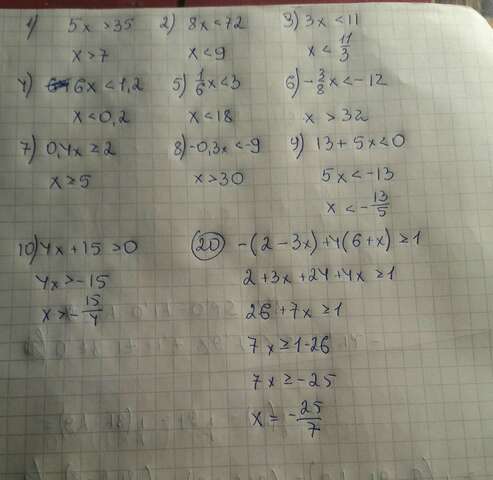 1) 5x > 35 2) 8x < 72 3) 3x < 11
x > 7 x < 9 x < 11/3
4) 6x < 1,2 5) 1/6 x < 3 6) -3/8 x < -12
x < 0,2 x < 18 x > 32
7) 0,4x ≥ 2 8) -0,3x < -9 9) 13 + 5x < 0
x ≥ 5 x > 30 5x < -13
x < -13/5
10) 4x + 15 > 0 20 -(2 - 3x) + 4(6 + x) ≥ 1
4x > -15 2 + 3x + 24 + 4x ≥ 1
x > -15/4 26 + 7x ≥ 1
7x ≥ 1 - 26
7x ≥ -25
x = -25/7